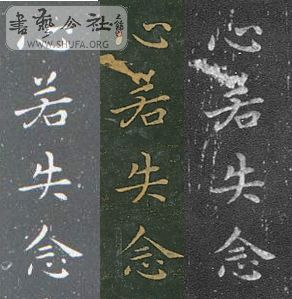 書藝公社
WWW.SHUFA.ORG
心若失念
心若失念
心若失念